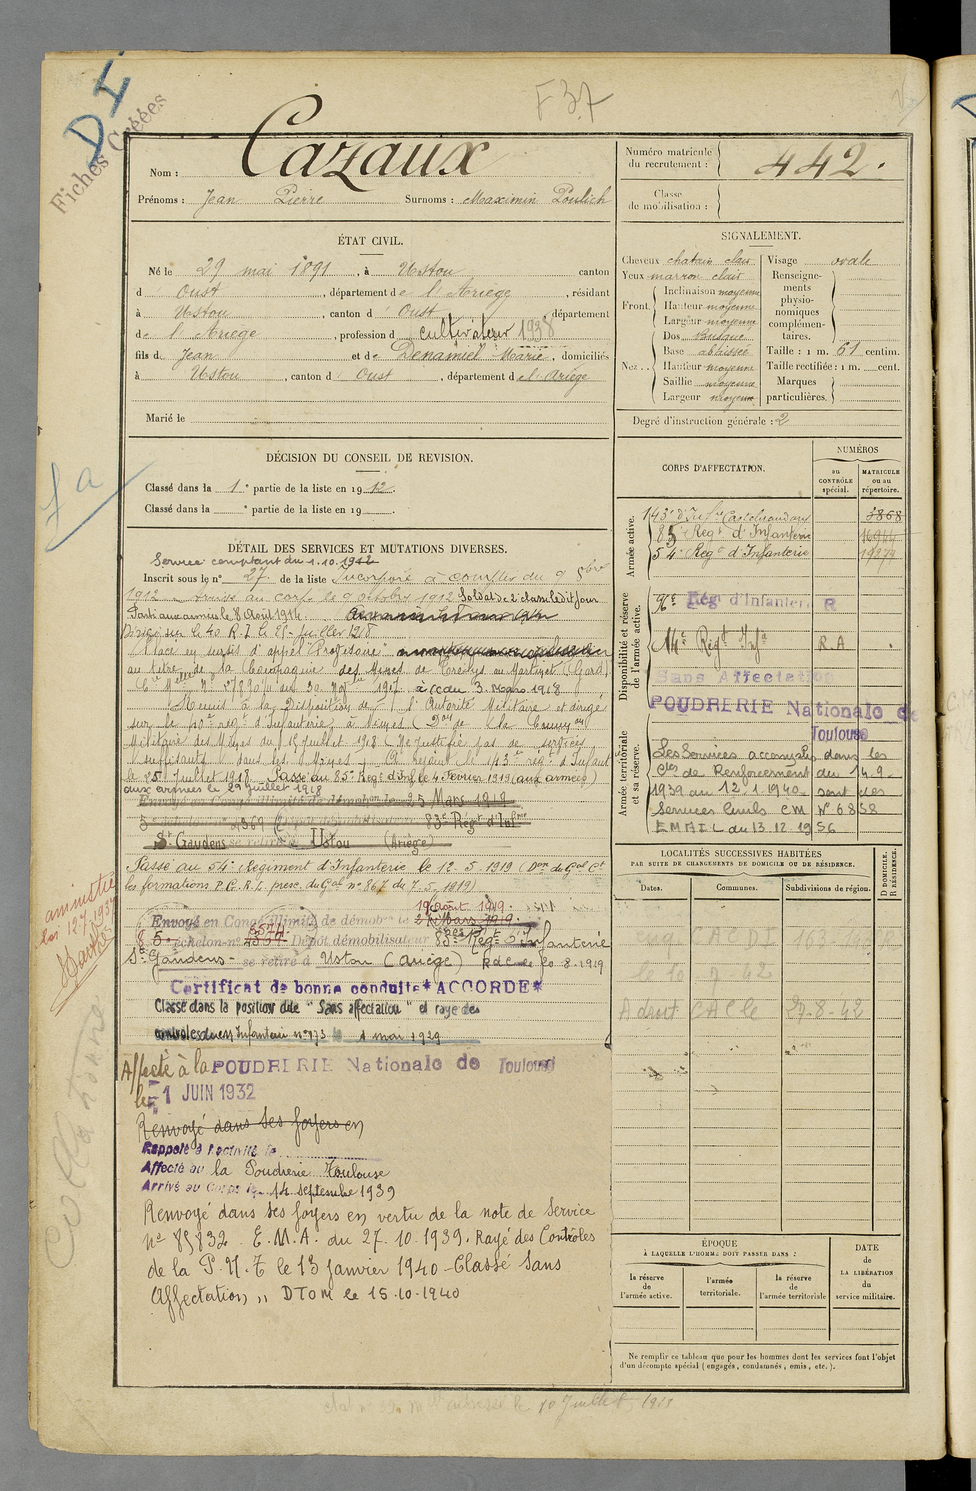 F 37
DI
Fiches Créées
Nom : Cazaux
Prénoms : Jean Pierre Surnoms : Maximin Poulich
Numéro matricule du recrutement : 442.
Classe de mobilisation :
ÉTAT CIVIL.
Né le 29 mai 1891, à Ustou canton
d'Oust, département de l'Ariège, résidant
à Ustou, canton d'Oust département
de l'Ariège, profession d cultivateur 1938
fils de Jean et de Denamiel Marie, domiciliés
à Ustou, canton d'Oust, département de l'Ariège
Marié le
SIGNALEMENT.
Cheveux chatain clair
Yeux marron clair
Front. Inclinaison moyenne
Hauteur moyenne
Largeur moyenne
Nez .. Dos busqué
Base abaissée
Hauteur moyenne
Saillie moyenne
Largeur moyenne
Visage ovale
Renseignements physionomiques complémentaires.
Taille : 1 m. 61 centim.
Taille rectifiée : 1 m. cent.
Marques particulières.
Degré d'instruction générale : 2
DÉCISION DU CONSEIL DE REVISION.
Classé dans la 1e partie de la liste en 1912.
Classé dans la e partie de la liste en 19
DÉTAIL DES SERVICES ET MUTATIONS DIVERSES.
Service comptant du 1.10.1912
Inscrit sous le n° 27 de la liste Incorporé à compter du 9 8bre
1912 arrivé au corps le 9 octobre 1912 Soldat de 2e classe ledit jour
Parti aux armées le 8 Août 1914
Dirigé sur le 40 R.I. le 25 Juillet 1918
Placé en sursis d'appel Provisoire
au titre de la Compagnie des Mines de Trélys au Martinet (Gard)
Réunis à la Disposition de l'Autorité Militaire et dirigé
sur le 40e régt d'Infanterie, à Nîmes
Militaire des Mines du 15 Juillet 1918 (Ne justifie pas de services
suffisants dans les Mines) A rejoint le 143e régt d'Infant
le 25 Juillet 1918 Passé au 85e Regt d'Inf le 4 Février 1919 (aux armées)
aux armées le 29 Juillet 1918
Envoyé en Congé illimité de démobon le 25 Mars 1919
83e Régt d'Infrie
St Gaudens se retire à Ustou (Ariège)
Passé au 54e Regiment d'Infanterie le 12 5 1919
les formations P.G.R.L. presc. du Gal n° 867 du 7-5-1919)
19 Août 1919.
Envoyé en Congé illimité de démobon le 25 Mars 1919.
échelon n° Dépôt démobilisateur 83e Régt d'Infanterie
St Gaudens se retire à Ustou (Ariège) Rdc le 20-8-1919
Certificat de bonne conduite *ACCORDÉ*
Classé dans la position dite "Sans affectation" et rayé des
contrôles du en Infanterie n° 173 le 1 mai 1929
Affecté à la POUDRERIE Nationale de Toulouse
le 1 JUIN 1932
Renvoyé dans ses foyers en
Rappelé à l'activité le
Affecté au la Poudrerie Toulouse
Arrivé au Corps le 14 septembre 1939
Renvoyé dans ses foyers en vertu de la note de Service
n° 85832 E.M.A. du 27.10.1939. Rayé des Contrôles
de la P.N.T le 13 janvier 1940 - Classé Sans
Affectation,, DTOM le 15.10.1940
CORPS D'AFFECTATION.
NUMÉROS
au CONTRÔLE spécial.
MATRICULE ou au répertoire.
Armée active.
143e d'Infie Castelnaudary 3868
85 Regt d'Infanterie 16944
54e Regt d'Infanterie 19274
Disponibilité et réserve de l'armée active.
Rég. d'Infanterie R
14e Regt Infie R.A
Sans Affectation
POUDRERIE Nationale de
Toulouse
Armée territoriale et sa réserve.
Les Services accomplis dans les
Cies de Renforcement du 14.9.
1939 au 12.1.1940 sont des
Services Civils CM N° 6858
EMAIL du 13.12.1956
LOCALITÉS SUCCESSIVES HABITÉES
PAR SUITE DE CHANGEMENTS DE DOMICILE OU DE RÉSIDENCE.
Dates.
Communes.
Subdivisions de région.
D DOMICILE. R RÉSIDENCE.
le 10-7-42
A droit CA Cle 27-8-42
ÉPOQUE
À LAQUELLE L'HOMME DOIT PASSER DANS :
la réserve de l'armée active.
l'armée territoriale.
la réserve de l'armée territoriale
DATE de LA LIBÉRATION du service militaire.
Ne remplir ce tableau que pour les hommes dont les services font l'objet
d'un décompte spécial (engagés, condamnés, omis, etc.).
amnistié
loi 12.7.1937
le 10 Juillet 1913